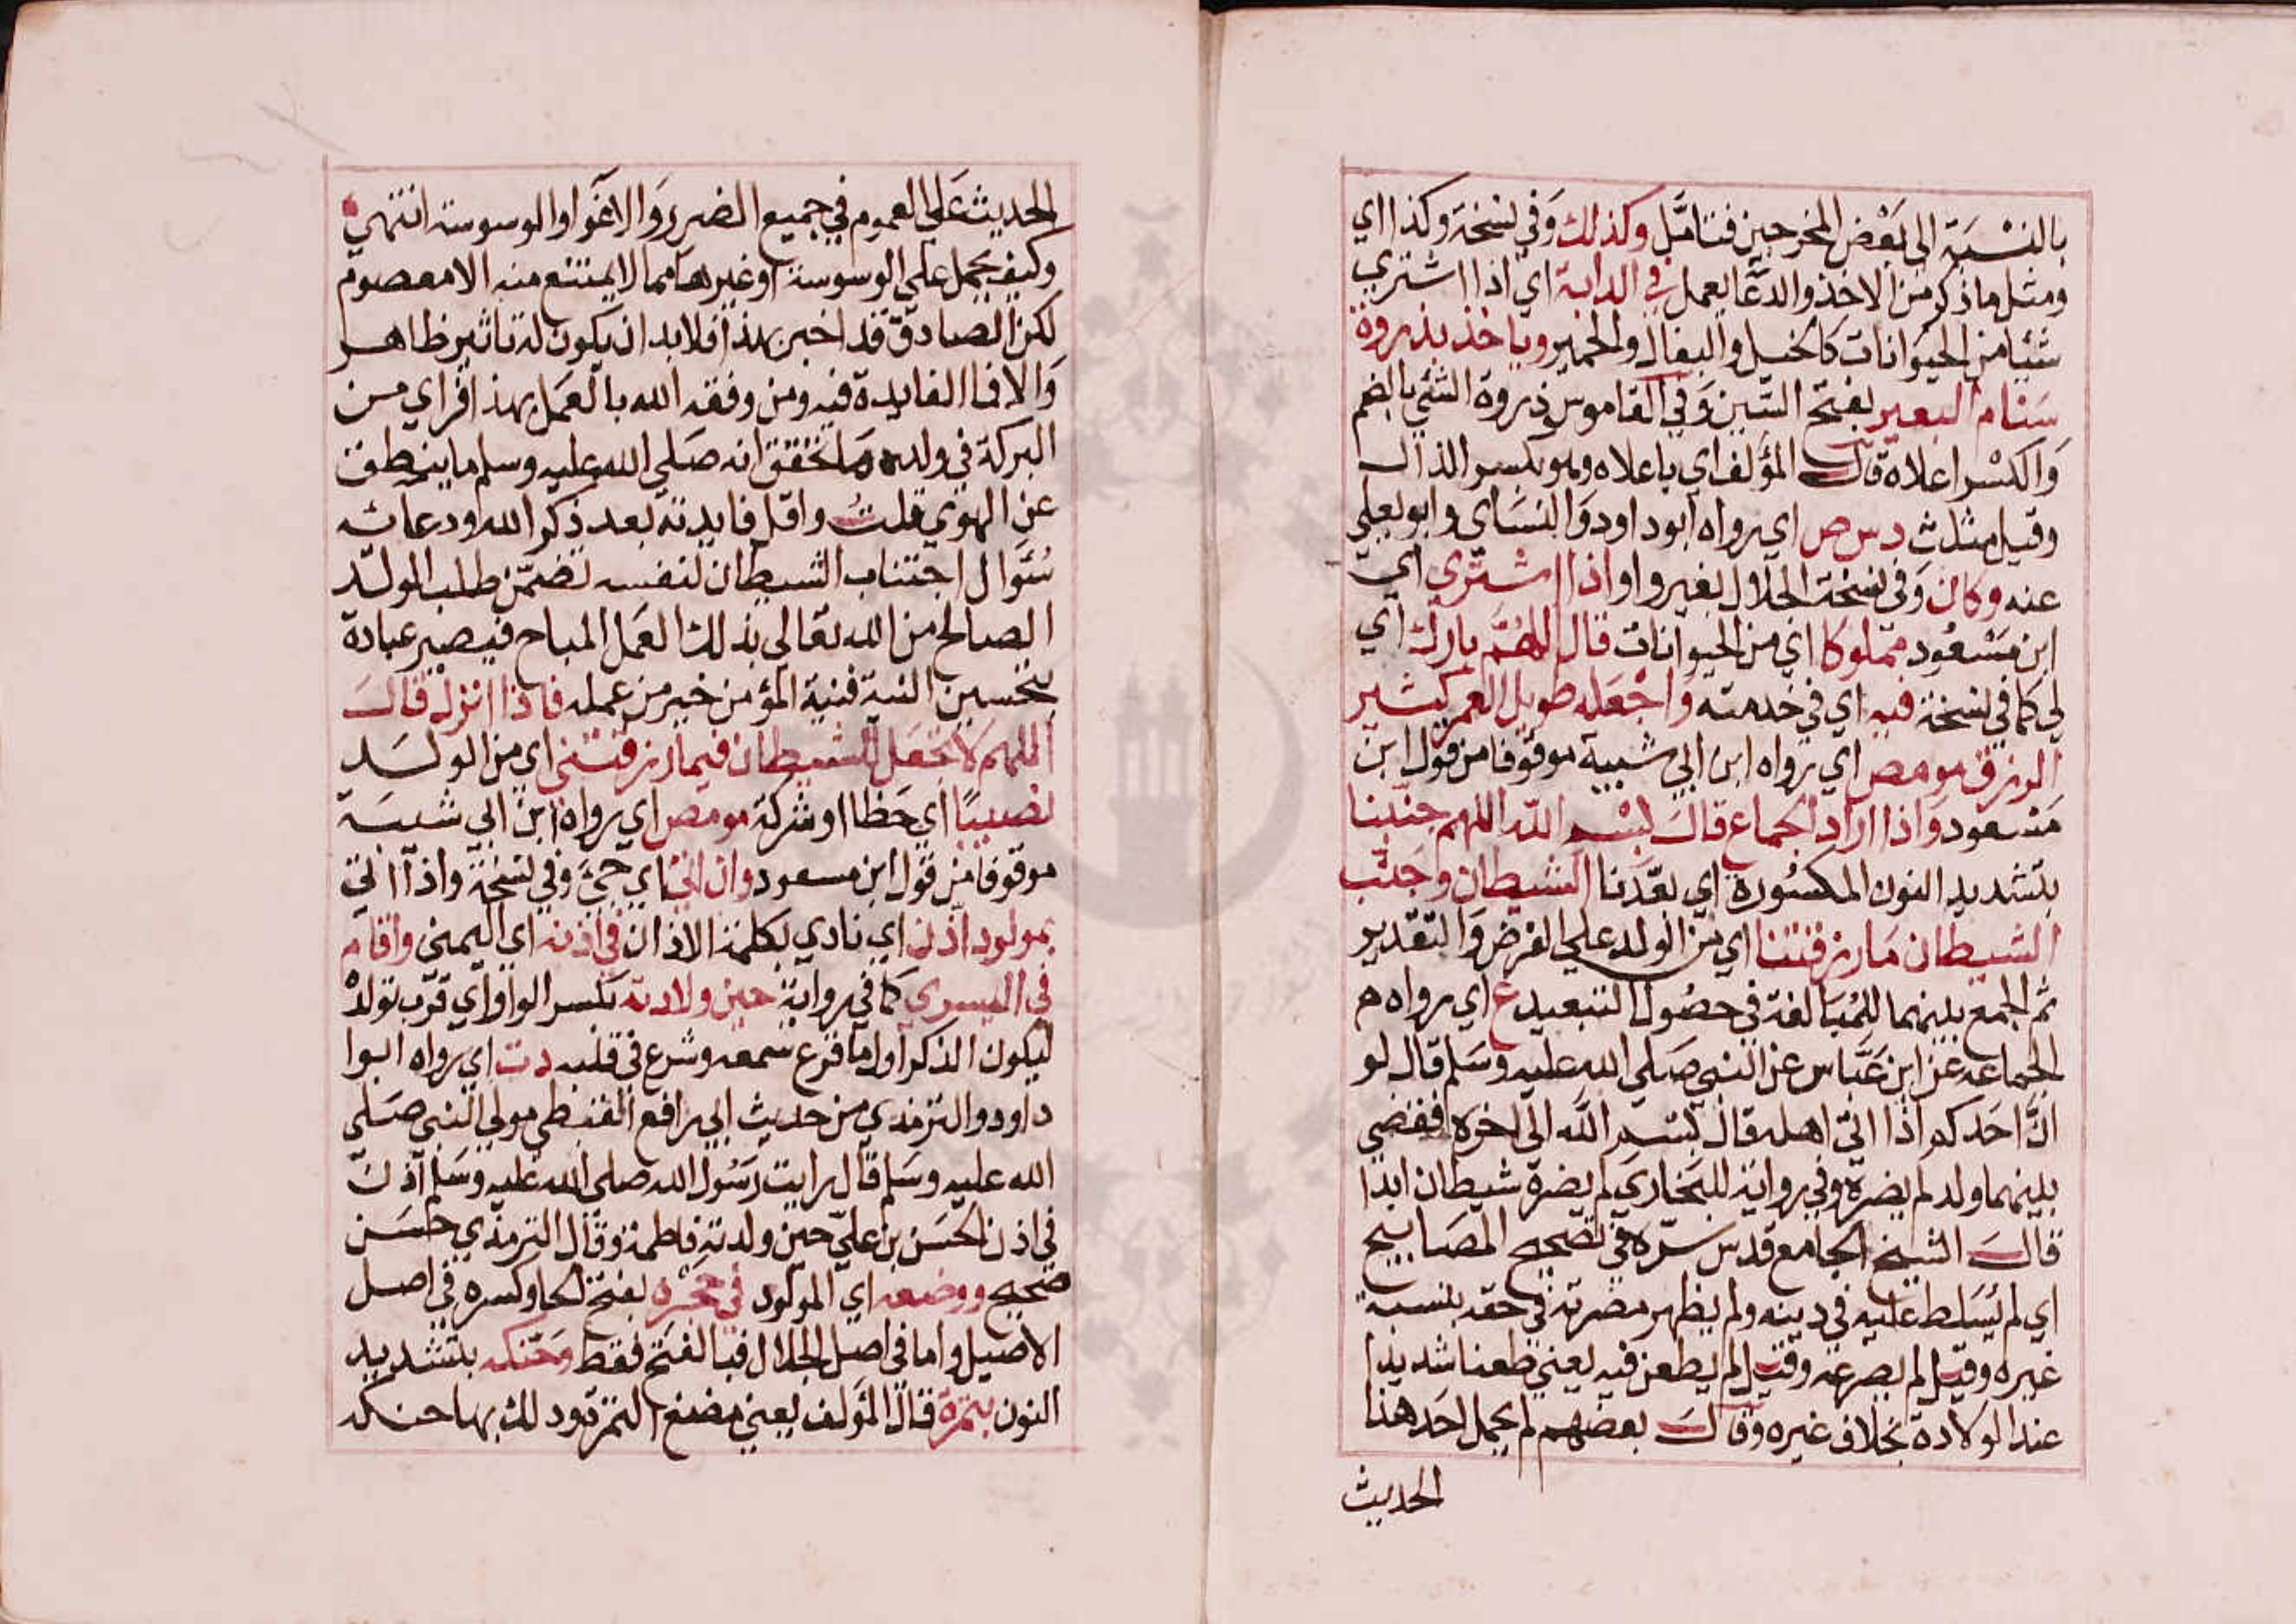 بالنسبة الى بعض المخرجين فتامّل وكذلك وفي نسخة وكذا اي
ومثل ما ذكر من الاخذ والدعا يعمل في الدابة اي اذا اشتري
شيئا من الحيوانات كالخيل والبغال والحمير وياخذ بذروة
سنام البعير بفتح السّين وفي القاموس ذروة الشئ بالضم
والكسر اعلاه قال المؤلف اي باعلاه وهو بكسر الذال
وقيل مثلث د س ص اي رواه ابو داود والنساي وابو يعلي
عنه وكان وفي نسخة الجلال بغير واو اذا اشتري اي
ابن مسعود مملوكا اي من الحيوانات قال اللهمّ بارك اي
لي كما في نسخة فيه اي في خدمته واجعله طويل العمر كثير
الرزق مو مص اي رواه ابن ابي شيبة موقوفا من قول ابن
مسعود واذا اراد الجماع قال بسم الله اللهم جنّبنا
بتشديد النون المكسورة اي بعّدنا الشيطان وجنّب
الشيطان ما رزقتنا اي من الولد علي الفرض والتقدير
ثم الجمع بينهما للمبالغة في حصول التبعيد ع اي رواه م
الجماعه عن ابن عبّاس عن النبي صلي الله عليه وسلم قال لو
انّ احدكم اذا اتي اهله قال بسم الله الى اخره فقضي
بينهما ولد لم يضره وفي رواية للبخاري لم يضره شيطان ابدا
قال الشيخ الجامع قدس سرّه في تصحيح المصابيح
اي لم يسلط عليه في دينه ولم يظهر مضرته في حقه بنسبة
غيره وقيل لم يصرعه وقيل لم يطعن فيه يعني طعنا شديدا
عند الولادة بخلاف غيره وقال بعضهم لم يحمل احد هذا
الحديث
الحديث علي العموم في جميع الضرر والاغوا والوسوسة انتهي
وكيف يحمل علي الوسوسة او غيرها مما لا يمتنع منه الا معصوم
لكن الصادق قد اخبر بهذا فلابد ان يكون له تاثير ظاهر
والا فما الفايدة فيه ومن وفقه الله بالعمل بهذا فراي من
البركة في ولده ما تحقق انه صلي الله عليه وسلم ما ينطق
عن الهوي قلت واقل فايدته بعد ذكر الله ودعائه
سُؤال اجتناب الشيطان لنفسه تضمّن طلب الولد
الصالح من الله تعالي بذلك العمل المباح فيصير عبادة
بتحسين النية فنية المؤمن خير من عمله فاذا انزل قال
اللهم لا تجعل للشيطان فيما رزقتني اي من الولد
نصيبًا اي حظا او شركة مو مص اي رواه ابن ابي شيبة
موقوفا من قول ابن مسعود وان اتي اي جئ وفي نسخة واذا اتي
بمولود اذن اي نادي بكلمة الاذان في اذنه اي اليمني واقام
في اليسري كما في رواية حين ولادته بكسر الواو اي قرب تولده
ليكون الذكر اول ما قرع سمعه وشرع في قلبه د ت اي رواه ابوا
داود والترمذي من حديث ابي رافع القبطي مولي النبي صلي
الله عليه وسلم قال رايت رسول الله صلي الله عليه وسلم اذن
في اذن الحسن بن عليّ حين ولدته فاطمة وقال الترمذي حسن
صحيح ووضعه اي المولود في حجره بفتح الحا وكسره في اصل
الاصيل واما في اصل الجلال فبالفتح فقط وحنّكه بتشديد
النون بتمرة قال المؤلف يعني مضغ التمر ودلك بها حنكه